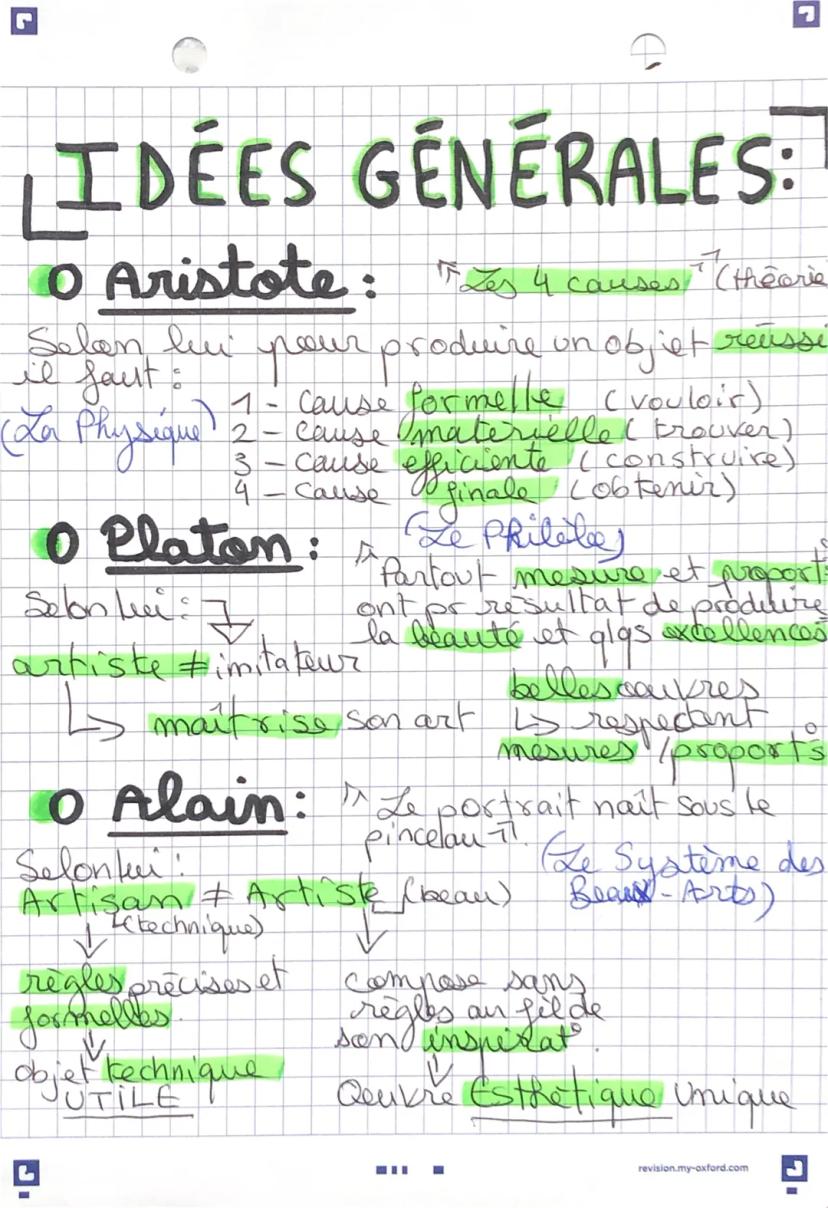 IDÉES GÉNÉRALES:
O Aristote : "Les 4 causes" (théorie
Selon lui pour produire un objet réussi
il faut :
(La Physique)
1 - Cause formelle (vouloir)
2 - cause matérielle (trouver)
3 - cause efficiente (construire)
4 - cause finale (obtenir)
O Platon : (Le Philèbe)
"Partout mesure et proport°
ont pr résultat de produire
la beauté et qlqs excellences
Selon lui :
artiste ≠ imitateur
↳ maîtrise son art
belles oeuvres
↳ respectent
mesures / proport°s
O Alain : "Le portrait naît sous le
pinceau".
(Le Système des
Beaux-Arts)
Selon lui :
Artisan ≠ Artiste (beau)
↳(technique)
règles précises et
formelles.
objet technique
UTILE
compose sans
règles au fil de
son inspirat°.
Oeuvre Esthétique Unique
revision.my-oxford.com